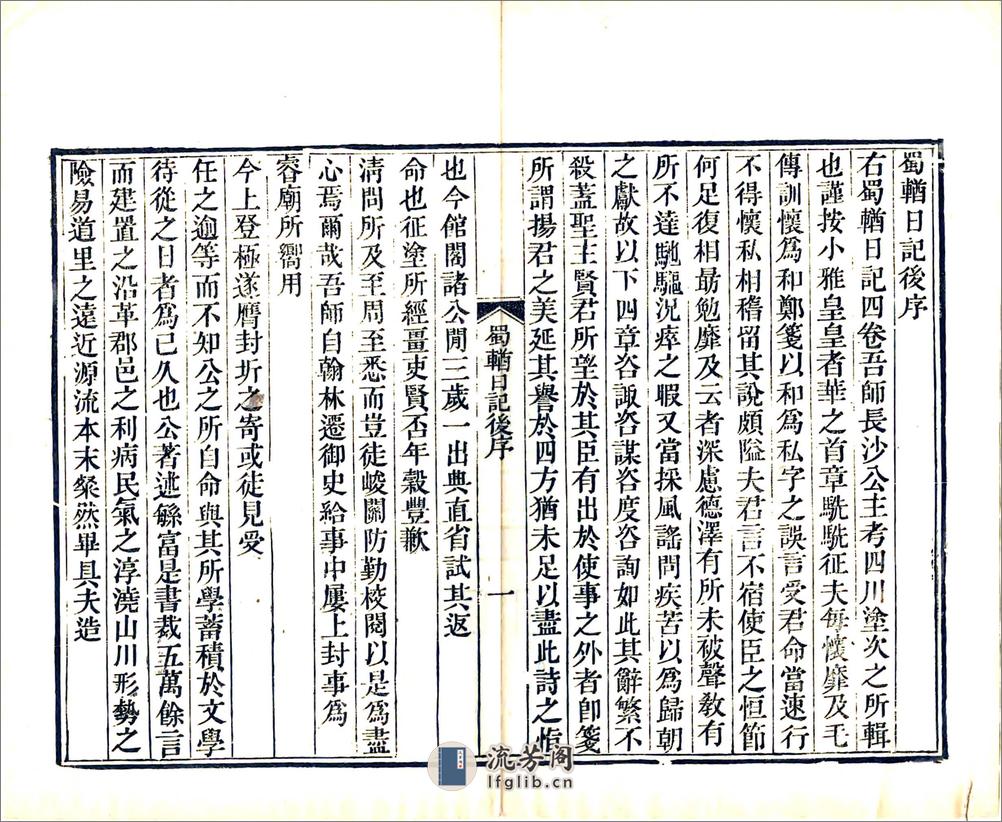 蜀輶日記後序
右蜀輶日記四卷吾師長沙公主考四川塗次之所輯
也謹按小雅皇皇者華之首章駪駪征夫每懷靡及毛
傳訓懷爲和鄭箋以和爲私字之誤言受君命當速行
不得懷私相稽留其說頗隘夫君言不宿使臣之恒節
何足復相勖勉靡及云者深慮德澤有所未被聲敎有
所不達馳驅況瘁之暇又當採風謠問疾苦以爲歸朝
之獻故以下四章咨諏咨謀咨度咨詢如此其辭繁不
殺蓋聖主賢君所望於其臣有出於使事之外者卽箋
所謂揚君之美延其譽於四方猶未足以盡此詩之恉
蜀輶日記後序
一
也今館閣諸公閒三歲一出典直省試其返
命也征塗所經畺吏賢否年穀豐歉
淸問所及至周至悉而豈徒峻關防勤校閱以是爲盡
心焉爾哉吾師自翰林遷御史給事中屢上封事爲
睿廟所嚮用
今上登極遂膺封圻之寄或徒見受
任之逾等而不知公之所自命與其所學蓄積於文學
待從之日者爲已久也公著述緐富是書裁五萬餘言
而建置之沿革郡邑之利病民氣之淳澆山川形勢之
險易道里之遠近源流本末粲然畢具夫造
流芳閣
lfglib.cn